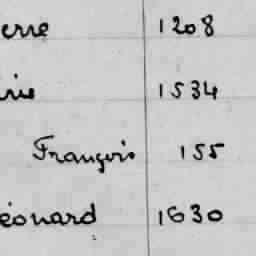 erre 1208
rie 1534
François 155
éonard 1630